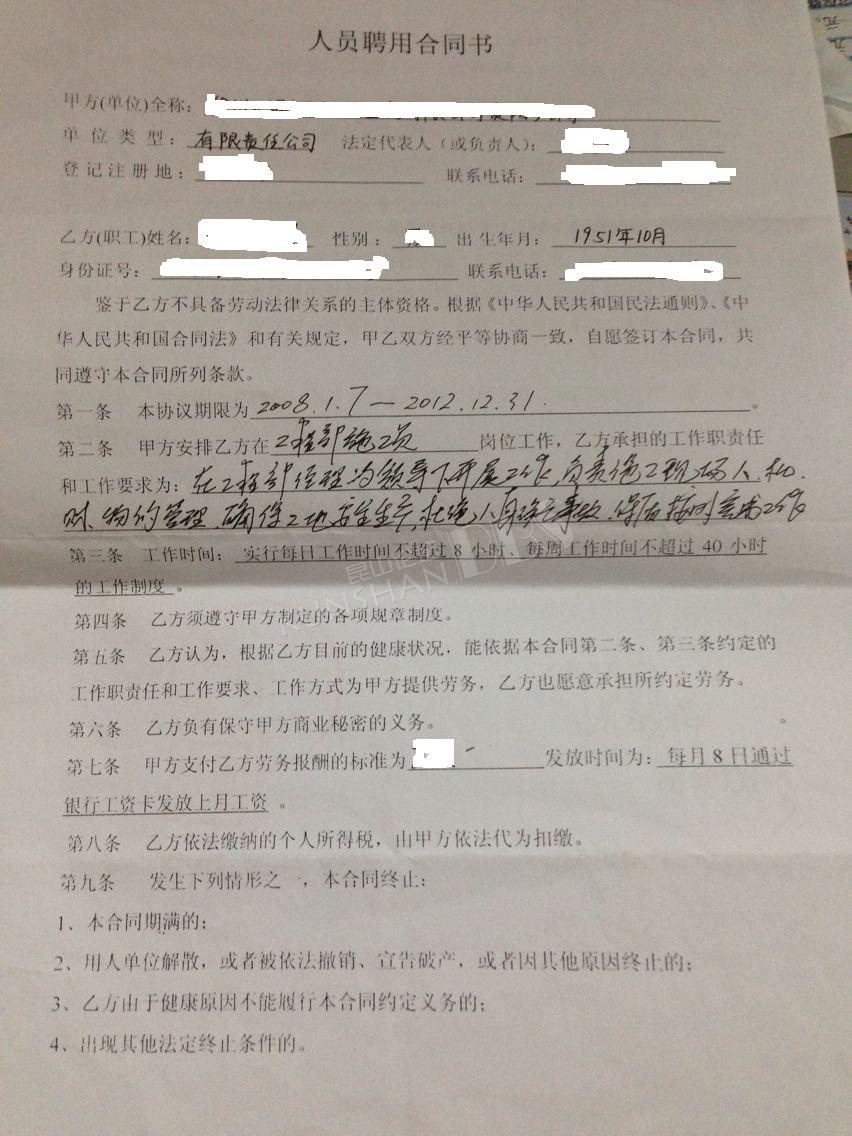 人员聘用合同书
甲方(单位)全称：
单位类型：有限责任公司 法定代表人（或负责人）：
登记注册地： 联系电话：
乙方(职工)姓名： 性别： 出生年月：1951年10月
身份证号： 联系电话：
鉴于乙方不具备劳动法律关系的主体资格。根据《中华人民共和国民法通则》、《中
华人民共和国合同法》和有关规定，甲乙双方经平等协商一致，自愿签订本合同，共
同遵守本合同所列条款。
第一条 本协议期限为2008.1.7—2012.12.31.。
第二条 甲方安排乙方在工程部施工员岗位工作，乙方承担的工作职责任
和工作要求为：在工程部经理领导下开展工作，负责施工现场人、机、
财、物的管理，确保工地安全生产，杜绝人身事故，按时完成工作
第三条 工作时间：实行每日工作时间不超过 8 小时、每周工作时间不超过 40 小时
的工作制度 。
第四条 乙方须遵守甲方制定的各项规章制度。
第五条 乙方认为，根据乙方目前的健康状况，能依据本合同第二条、第三条约定的
工作职责任和工作要求、工作方式为甲方提供劳务，乙方也愿意承担所约定劳务。
第六条 乙方负有保守甲方商业秘密的义务。 。
第七条 甲方支付乙方劳务报酬的标准为 发放时间为：每月 8 日通过
银行工资卡发放上月工资 。
第八条 乙方依法缴纳的个人所得税，由甲方依法代为扣缴。
第九条 发生下列情形之一，本合同终止：
1、本合同期满的；
2、用人单位解散，或者被依法撤销、宣告破产，或者因其他原因终止的；
3、乙方由于健康原因不能履行本合同约定义务的；
4、出现其他法定终止条件的。